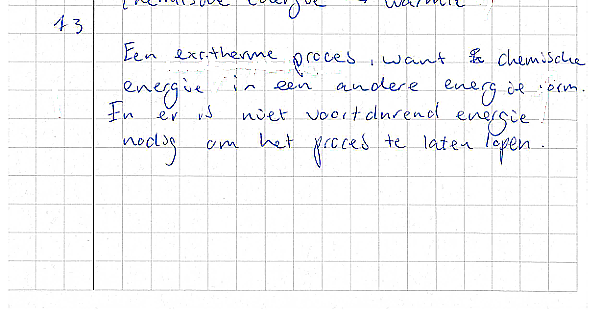 chemische energie → warmte
13
Een exotherme proces, want chemische
energie in een andere energievorm.
En er is niet voortdurend energie
nodig om het proces te laten lopen.